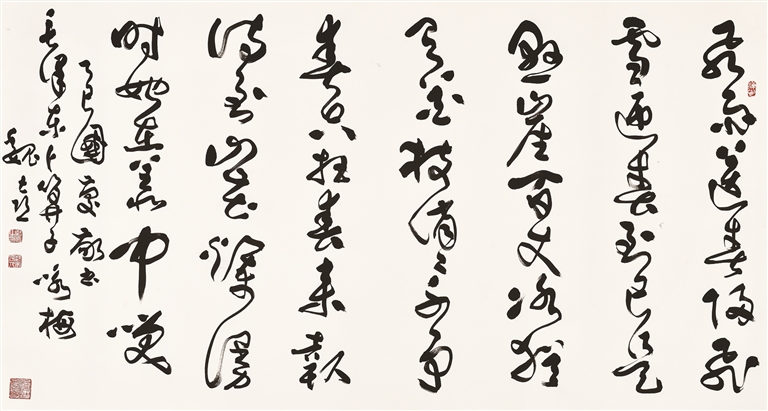 风雨送春归飞
雪迎春到已是
悬崖百丈冰犹
有花枝俏々不争
春只把春来报
待到山花烂漫
时她在丛中笑
乙巳國慶敬书
毛泽东卜算子咏梅
魏